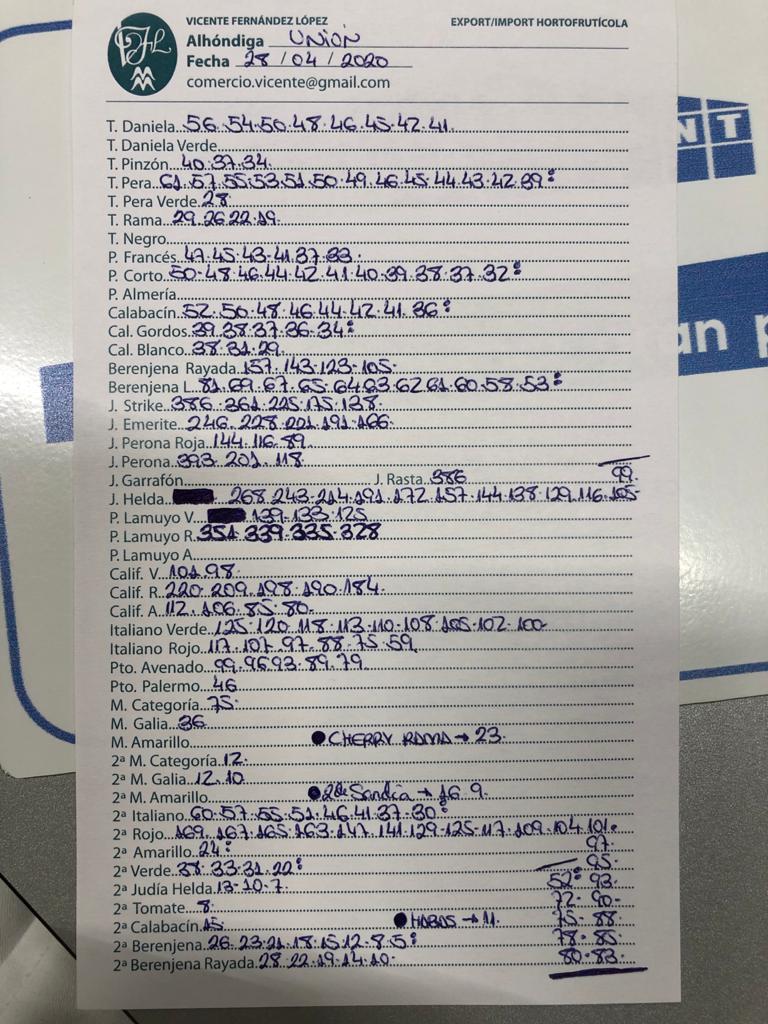 VICENTE FERNÁNDEZ LÓPEZ EXPORT/IMPORT HORTOFRUTÍCOLA
Alhóndiga UNION
Fecha 28 / 04 / 2020
comercio.vicente@gmail.com
T. Daniela 56.54.50.48.46.45.42.41.
T. Daniela Verde
T. Pinzón 40.37.34.
T. Pera 61.57.55.53.51.50.49.46.45.44.43.42.39:
T. Pera Verde 28
T. Rama 29.26.22.19.
T. Negro
P. Francés 47.45.43.41.37.33.
P. Corto 50.48.46.44.42.41.40.39.38.37.32:
P. Almería
Calabacín 52.50.48.46.44.42.41.36:
Cal. Gordos 39.38.37.36.34:
Cal. Blanco 38.31.29.
Berenjena Rayada 157.143.123.105.
Berenjena L. 81.69.67.65.64.63.62.61.60.58.53:
J. Strike 386.361.225.175.138.
J. Emerite 246.228.201.191.166.
J. Perona Roja 144.116.89.
J. Perona 393.201.118
J. Garrafón J. Rasta 386 99.
J. Helda 268.243.214.191.172.157.144.138.129.116.105.
P. Lamuyo V. 139.133.125
P. Lamuyo R. 351.339.335.328
P. Lamuyo A.
Calif. V. 101.98.
Calif. R. 220.209.198.190.184.
Calif. A. 112.106.85.80.
Italiano Verde 125.120.118.113.110.108.105.102.100
Italiano Rojo 117.107.97.88.75.59.
Pto. Avenado 99.96.93.89.79.
Pto. Palermo 46
M. Categoría 75.
M. Galia 36
M. Amarillo ●CHERRY RAMA→23.
2ª M. Categoría 12.
2ª M. Galia 12.10.
2ª M. Amarillo ●2de Sandia→16.9.
2ª Italiano 60.57.55.51.46.41.37.30:
2ª Rojo 169.167.165.163.147.141.129.125.117.109.104.101.
2ª Amarillo 24: 97.
2ª Verde 38.33.31.22: 95.
2ª Judía Helda 13-10-7. 52: 93.
2ª Tomate 8. 72. 90.
2ª Calabacín 15 ●HABAS→11. 75. 88.
2ª Berenjena 26.23.21.18.15.12.8.5: 78. 85.
2ª Berenjena Rayada 28.22.19.14.10. 80.83.
NT
an p